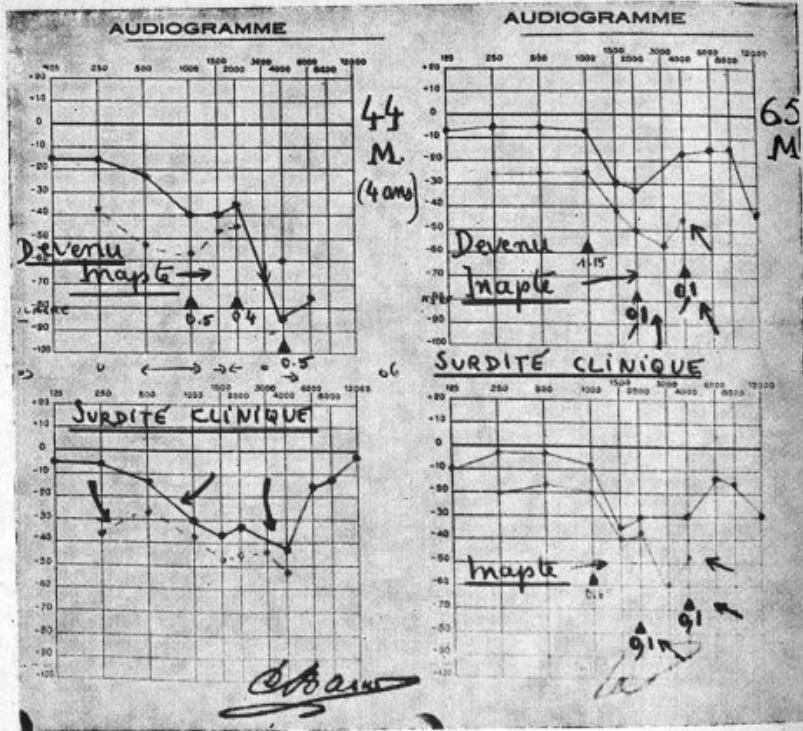 AUDIOGRAMME
125 250 500 1000 1500 2000 3000 4000 6000 8000 12000
+20
+10
0
-10
-20
-30
-40
-50
-60
-70
-80
-90
-100
44
M.
(4 ans)
Devenu
Inapte
0.5
0.4
0.5
125 250 500 1000 1500 2000 3000 4000 6000 8000 12000
SURDITÉ CLINIQUE
+20
+10
0
-10
-20
-30
-40
-50
-60
-70
-80
-90
-100
AUDIOGRAMME
125 250 500 1000 1500 2000 3000 4000 6000 8000 12000
+20
+10
0
-10
-20
-30
-40
-50
-60
-70
-80
-90
-100
65
M
Devenu
1.15
Inapte
0,1
0,1
SURDITÉ CLINIQUE
125 250 500 1000 1500 2000 3000 4000 6000 8000 12000
+20
+10
0
-10
-20
-30
-40
-50
-60
-70
-80
-90
-100
Inapte
0,1
0,1